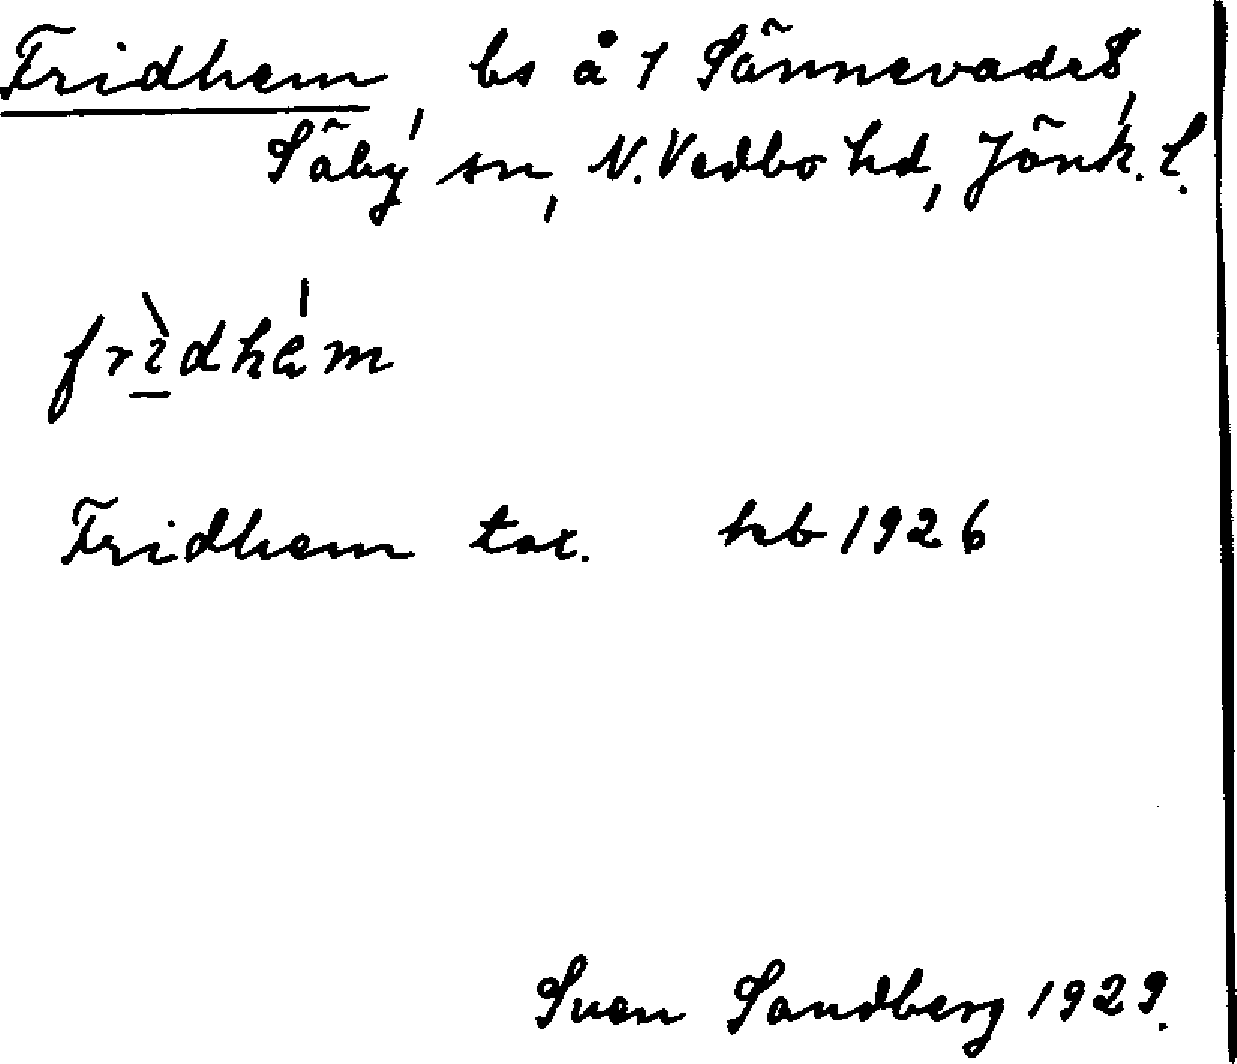 Fridhem, bs å 1 Sännevadet,
Säby sn, N. Vedbo hd, Jönk. l.
frìdhém
Fridhem tor. hb 1926
Sven Sandberg 1929.